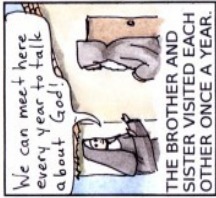 We can meet here
every year to talk
about God!
THE BROTHER AND
SISTER VISITED EACH
OTHER ONCE A YEAR.